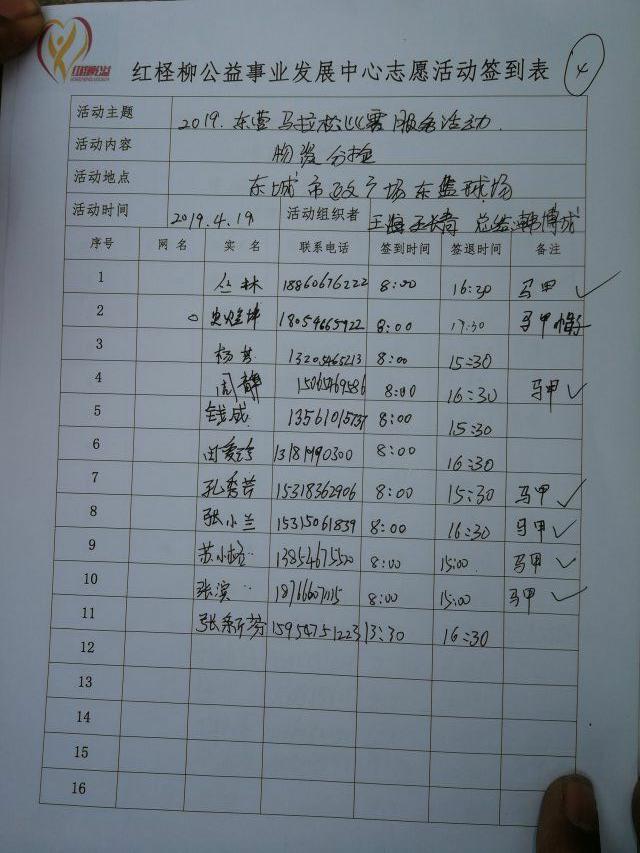 红柽柳公益事业发展中心志愿活动签到表 4
活动主题 2019.东营马拉松比赛服务活动
活动内容 物资分捡
活动地点 东城市政广场东篮球场
活动时间 2019.4.19 活动组织者 王海 王长青 总结:韩博成
序号 网名 实名 联系电话 签到时间 签退时间 备注
1 丛林 18860676222 8:00 16:30 马甲 ✓
2 18054665922 8:00 17:30 马甲 帽子
3 杨 13205465213 8:00 15:30
4 周静 15065469586 8:00 16:30 马甲 ✓
5 钱成 13561015737 8:00 15:30
6 8:00 16:30
7 孔秀芳 15318362906 8:00 15:30 马甲 ✓
8 张小兰 15315061839 8:00 16:30 马甲 ✓
9 苏小 13854675520 8:00 15:00 马甲 ✓
10 张滨 8:00 15:00 马甲 ✓
11 张新芬 15954751223 13:30 16:30
12
13
14
15
16